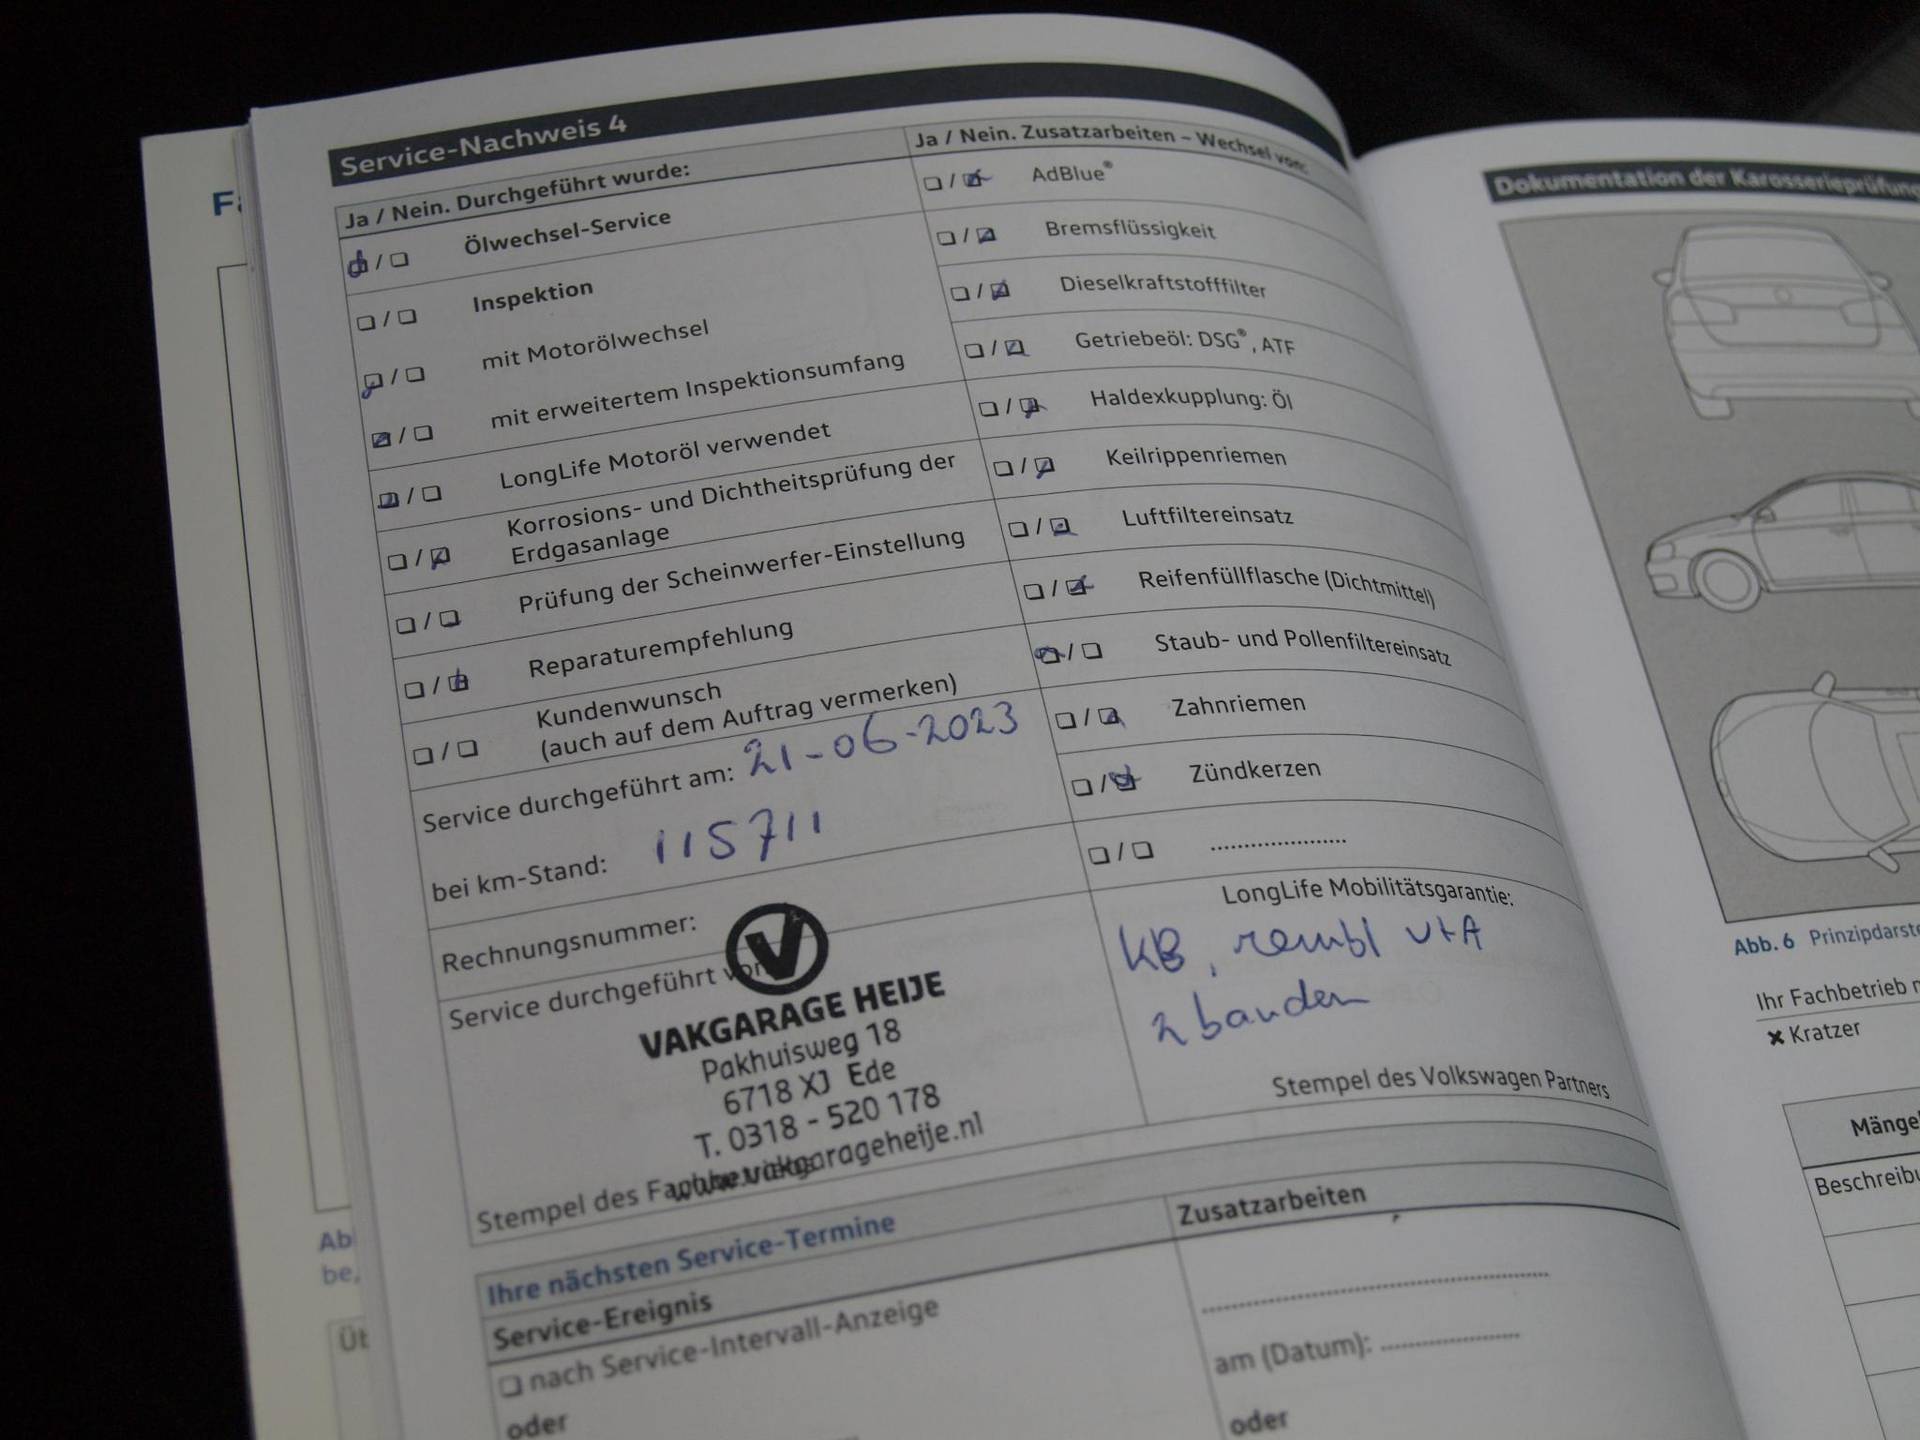 Service-Nachweis 4
Ja / Nein. Durchgeführt wurde:
Ölwechsel-Service
Inspektion
mit Motorölwechsel
mit erweitertem Inspektionsumfang
LongLife Motoröl verwendet
Korrosions- und Dichtheitsprüfung der
Erdgasanlage
Prüfung der Scheinwerfer-Einstellung
Reparaturempfehlung
Kundenwunsch
(auch auf dem Auftrag vermerken)
Service durchgeführt am: 21-06-2023
bei km-Stand: 115711
Rechnungsnummer:
Service durchgeführt von
V
VAKGARAGE HEIJE
Pakhuisweg 18
6718 XJ Ede
T. 0318 - 520 178
www.vakgarageheije.nl
Stempel des Fachbetriebs
Ja / Nein. Zusatzarbeiten – Wechsel von:
AdBlue®
Bremsflüssigkeit
Dieselkraftstofffilter
Getriebeöl: DSG®, ATF
Haldexkupplung: Öl
Keilrippenriemen
Luftfiltereinsatz
Reifenfüllflasche (Dichtmittel)
Staub- und Pollenfiltereinsatz
Zahnriemen
Zündkerzen
....................
LongLife Mobilitätsgarantie:
KB, rembl V+A
2 banden
Stempel des Volkswagen Partners
Ihre nächsten Service-Termine
Service-Ereignis
nach Service-Intervall-Anzeige
oder
Zusatzarbeiten
am (Datum): ....................
oder
Dokumentation der Karosserieprüfung
Abb. 6 Prinzipdarste
Ihr Fachbetrieb
✖ Kratzer
Mänge
Beschreibu
Ab
be,
Üb